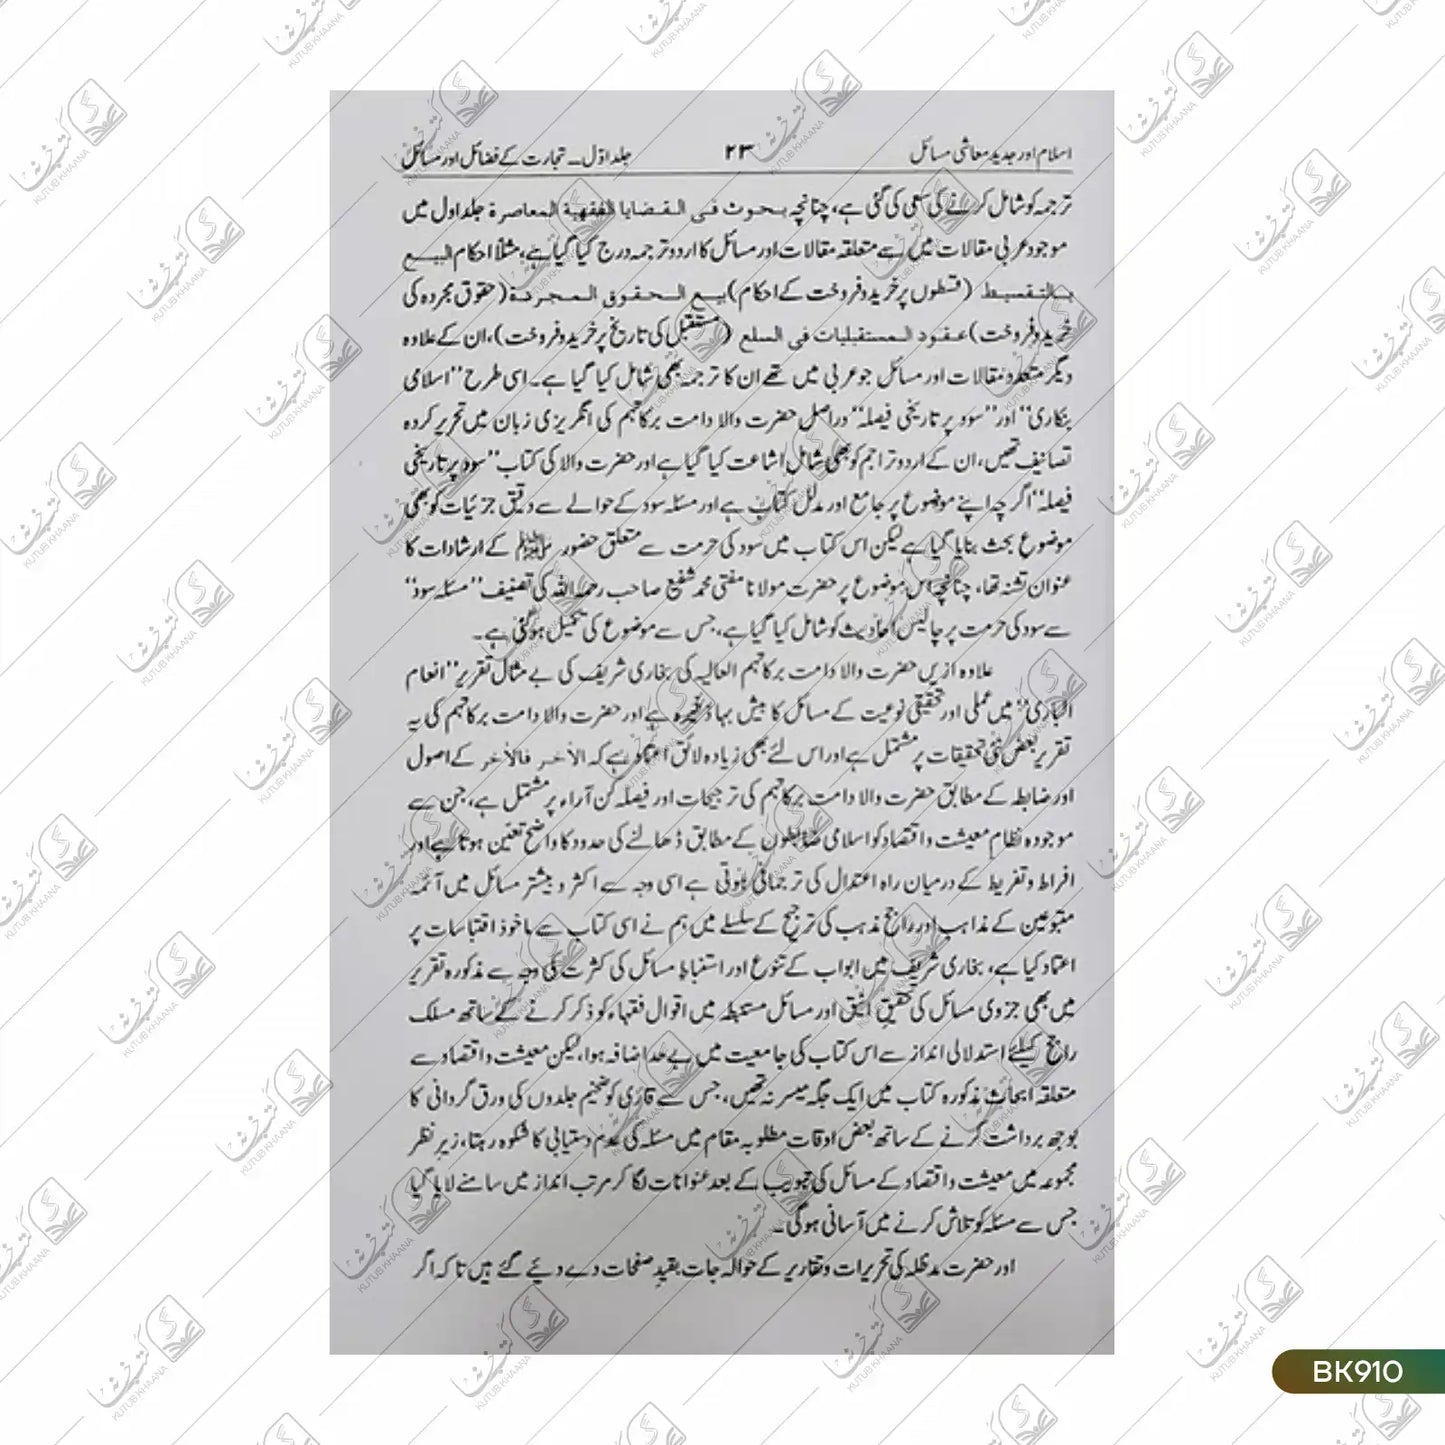 اسلام اور جدید معاشی مسائل ۲۳ جلد اوّل ـ تجارت کے فضائل اور مسائل
ترجمہ کو شامل کرنے کی سعی کی گئی ہے، چنانچہ بحوث فی القضایا الفقهية المعاصرة جلد اول میں
موجود عربی مقالات میں سے متعلقہ مقالات اور مسائل کا اردو ترجمہ درج کیا گیا ہے، مثلاً احکام البیع
بالتقسیط (قسطوں پر خرید و فروخت کے احکام) بیع الحقوق المجردة (حقوق مجردہ کی
خرید و فروخت) عقود المستقبلیات فی السلع (مستقبل کی تاریخ پر خرید و فروخت)، ان کے علاوہ
دیگر متعدد مقالات اور مسائل جو عربی میں تھے ان کا ترجمہ بھی شامل کیا گیا ہے۔ اسی طرح "اسلامی
بنکاری" اور "سود پر تاریخی فیصلہ" دراصل حضرت والا دامت برکاتہم کی انگریزی زبان میں تحریر کردہ
تصانیف تھیں، ان کے اردو تراجم کو بھی شامل اشاعت کیا گیا ہے اور حضرت والا کی کتاب "سود پر تاریخی
فیصلہ" اگرچہ اپنے موضوع پر جامع اور مدلل کتاب ہے اور مسئلہ سود کے حوالے سے دقیق جزئیات کو بھی
موضوع بحث بنایا گیا ہے لیکن اس کتاب میں سود کی حرمت سے متعلق حضور ﷺ کے ارشادات کا
عنوان تشنہ تھا، چنانچہ اس موضوع پر حضرت مولانا مفتی محمد شفیع صاحب رحمہ اللہ کی تصنیف "مسئلہ سود"
سے سود کی حرمت پر چالیس احادیث کو شامل کیا گیا ہے، جس سے موضوع کی تکمیل ہو گئی ہے۔
علاوہ ازیں حضرت والا دامت برکاتہم العالیہ کی بخاری شریف کی بے مثال تقریر "انعام
الباری" میں عملی اور تحقیقی نوعیت کے مسائل کا بیش بہا ذخیرہ ہے اور حضرت والا دامت برکاتہم کی یہ
تقریر بعض نئی تحقیقات پر مشتمل ہے اور اس لئے بھی زیادہ لائق اعتماد ہے کہ الآخر فالآخر کے اصول
اور ضابطہ کے مطابق حضرت والا دامت برکاتہم کی ترجیحات اور فیصلہ کن آراء پر مشتمل ہے، جن سے
موجودہ نظام معیشت و اقتصاد کو اسلامی ضابطوں کے مطابق ڈھالنے کی حدود کا واضح تعین ہوتا ہے اور
افراط و تفریط کے درمیان راہ اعتدال کی ترجمانی ہوتی ہے اسی وجہ سے اکثر و بیشتر مسائل میں آئمہ
متبوعین کے مذاہب اور راجح مذہب کی ترجیح کے سلسلے میں ہم نے اسی کتاب سے ماخوذ اقتباسات پر
اعتماد کیا ہے، بخاری شریف میں ابواب کے تنوع اور استنباطِ مسائل کی کثرت کی وجہ سے مذکورہ تقریر
میں بھی جزوی مسائل کی تحقیق انیق اور مسائل مستنبطہ میں اقوال فقہاء کو ذکر کرنے کے ساتھ مسلک
راجح کیلئے استدلالی انداز سے اس کتاب کی جامعیت میں بے حد اضافہ ہوا، لیکن معیشت و اقتصاد سے
متعلقہ ابحاث مذکورہ کتاب میں ایک جگہ میسر نہ تھیں، جس سے قاری کو ضخیم جلدوں کی ورق گردانی کا
بوجھ برداشت کرنے کے ساتھ بعض اوقات مطلوبہ مقام میں مسئلہ کی عدم دستیابی کا شکوہ رہتا، زیر نظر
مجموعہ میں معیشت و اقتصاد کے مسائل کی تبویب کے بعد عنوانات لگا کر مرتب انداز میں سامنے لایا گیا
جس سے مسئلہ کو تلاش کرنے میں آسانی ہو گی۔
اور حضرت مدظلہ کی تحریرات و تقاریر کے حوالہ جات بقید صفحات دے دیئے گئے ہیں تا کہ اگر
BK910